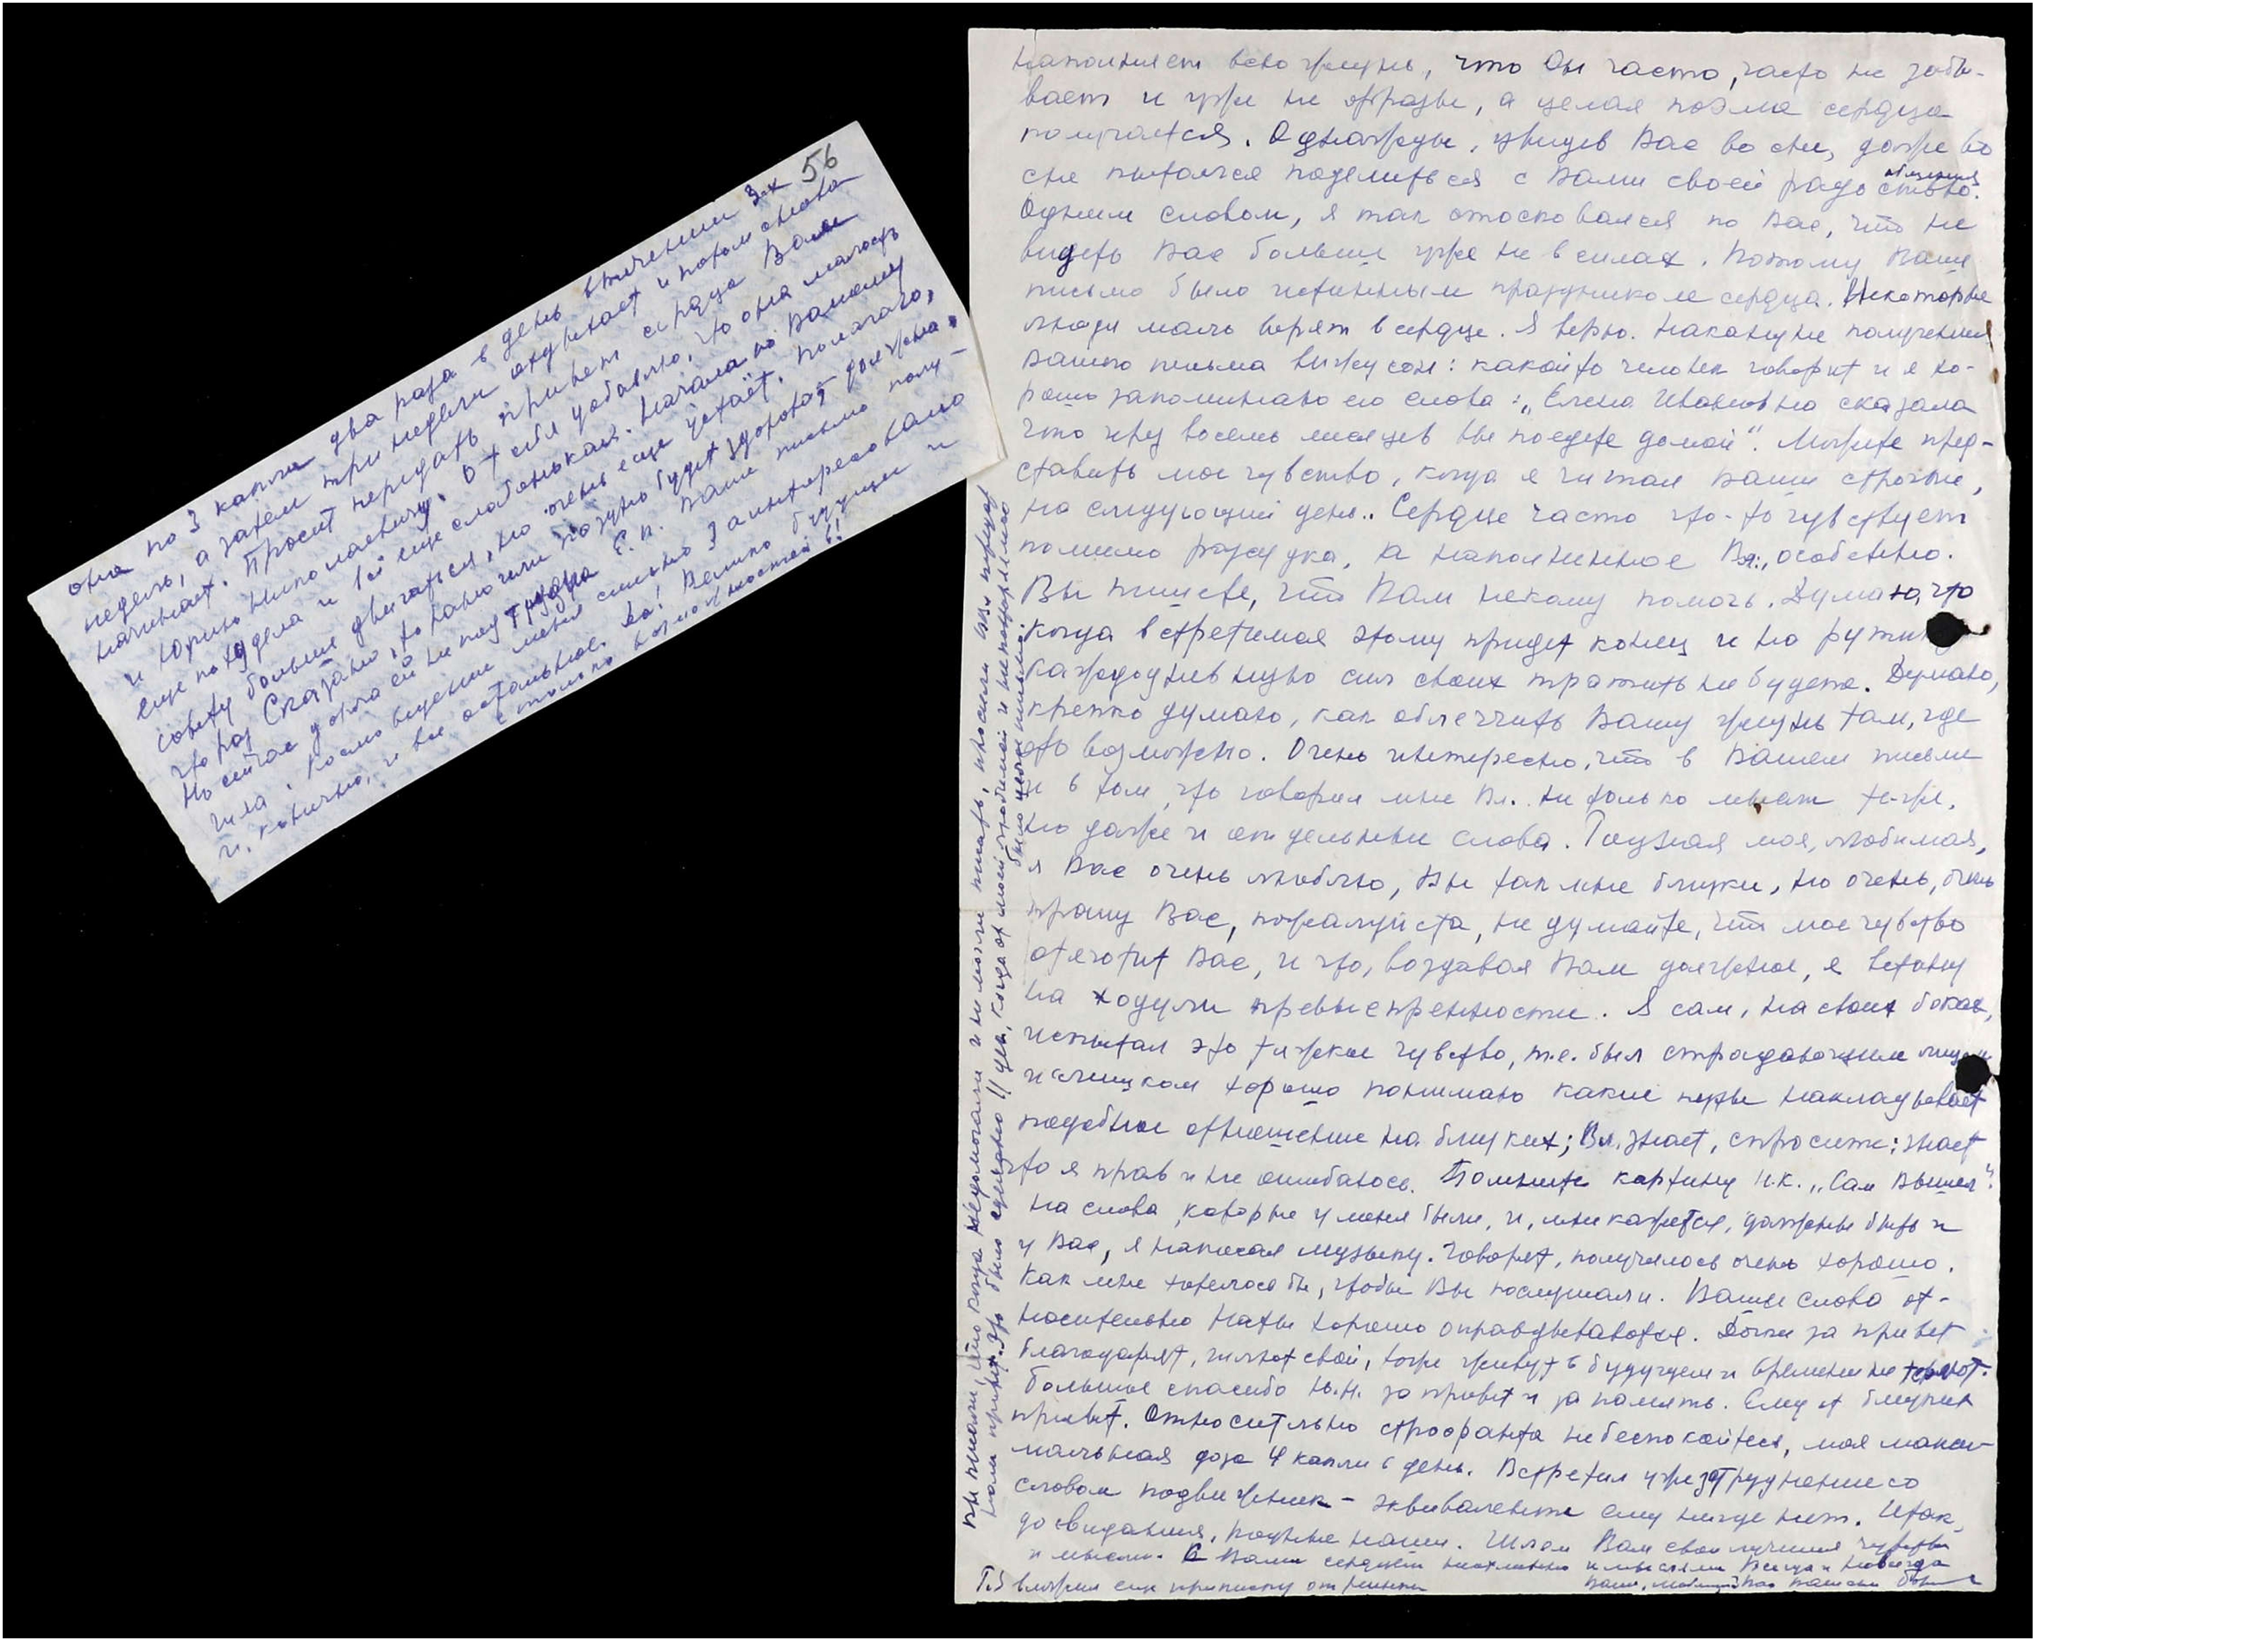 56
она по 3 капли два раза в день в течении 3-х
недель, а затем три недели отдыхает и потом снова
начинает. Просит передать привет сердца Вам
и Юрию Николаевичу. От себя добавлю, что она малость
еще похудела и всё еще слабенькая. Начала по Вашему
совету больше двигаться, но очень еще устаёт. Полагаю,
что раз сказано, то рано или поздно будет здорова,
Но сейчас доля её
чила. Космовидении меня сильно заинтересовало
и, конечно, и все остальное. Да! Велико будущее и
столько возможностей в!!
наполняет всю жизнь, что Он часто, часто не забы-
вает и уже не фразы, а целая поэма сердца
получается. Однажды, увидев Вас во сне, даже во
сне пытался поделиться с Вами своей радостью.
Одним словом, я так стосковался по Вас, что не
видеть Вас больше уже не в силах. Потому Ваше
письмо было истинным праздником сердца. Некоторые
люди мало верят в сердце. Я верю. Накануне получения
Вашего письма вижу сон: какой-то человек говорит и я хо-
рошо запоминаю его слова: „Елена Ивановна сказала
что чрез восемь месяцев Вы поедете домой". Можете пред-
ставить мое чувство, когда я читал Ваши строки,
на следующий день.. Сердце часто что-то чувствует
помимо рассудка, а наполненное Вл., особенно.
Вы пишете, что Вам некому помочь. Думаю, что
когда встретимся этому придет конец и на
каждодневную сил своих тратить не будете. Думаю,
крепко думаю, как облегчить Вашу жизнь там, где
это возможно. Очень интересно, что в Вашем письме
и в том, что говорил мне Вл. не только мысли те-же,
но даже и отдельные слова. Родная моя, любимая,
я Вас очень люблю, Вы так мне близки, но очень, очень
прошу Вас, пожалуйста, не думайте, что мое чувство
отяготит Вас, и что, воздавая Вам должное, я встану
на ходули превыспренности. Я сам, на своих боках,
испытал это тяжкое чувство, т.е. был страдающим лицом
и слишком хорошо понимаю какие путы накладывает
подобное отношение на близких; Вл. знает, спросите: знает
что я прав и не ошибаюсь. Помните картину Н.К. „Сам Вышел".
На слова, которые у меня были, и, мне кажется, должны быть и
у Вас, я написал музыку. Говорят, получилось очень хорошо.
Как мне хотелось бы, чтобы Вы послушали. Ваши слова от-
носительно Наты хорошо оправдываются. Дочки за привет
благодарят, шлют свой, тоже живут в будущем и времени не теряют.
Большое спасибо Ю.Н. за привет и за память. Ему от близких
привет. Относительно строфанта не беспокойтесь, моя макси-
мальная доза 4 капли в день. Встретил уже затруднение со
словом подвижник – эквивалента ему нигде нет. Итак,
до свидания, родные наши. Шлем Вам свои лучшие чувства
и мысли. С Вами сердцем неотменно и мыслями всегда и навсегда
Ваш, любящий Вас
P.S вложил еще приписку от
Вы писали, что когда недомогали и не могли писать, просили Ч. передать
нам привет. Это было сделано 11 дек., когда от моей любимой и неповторимой
было целое письмо.